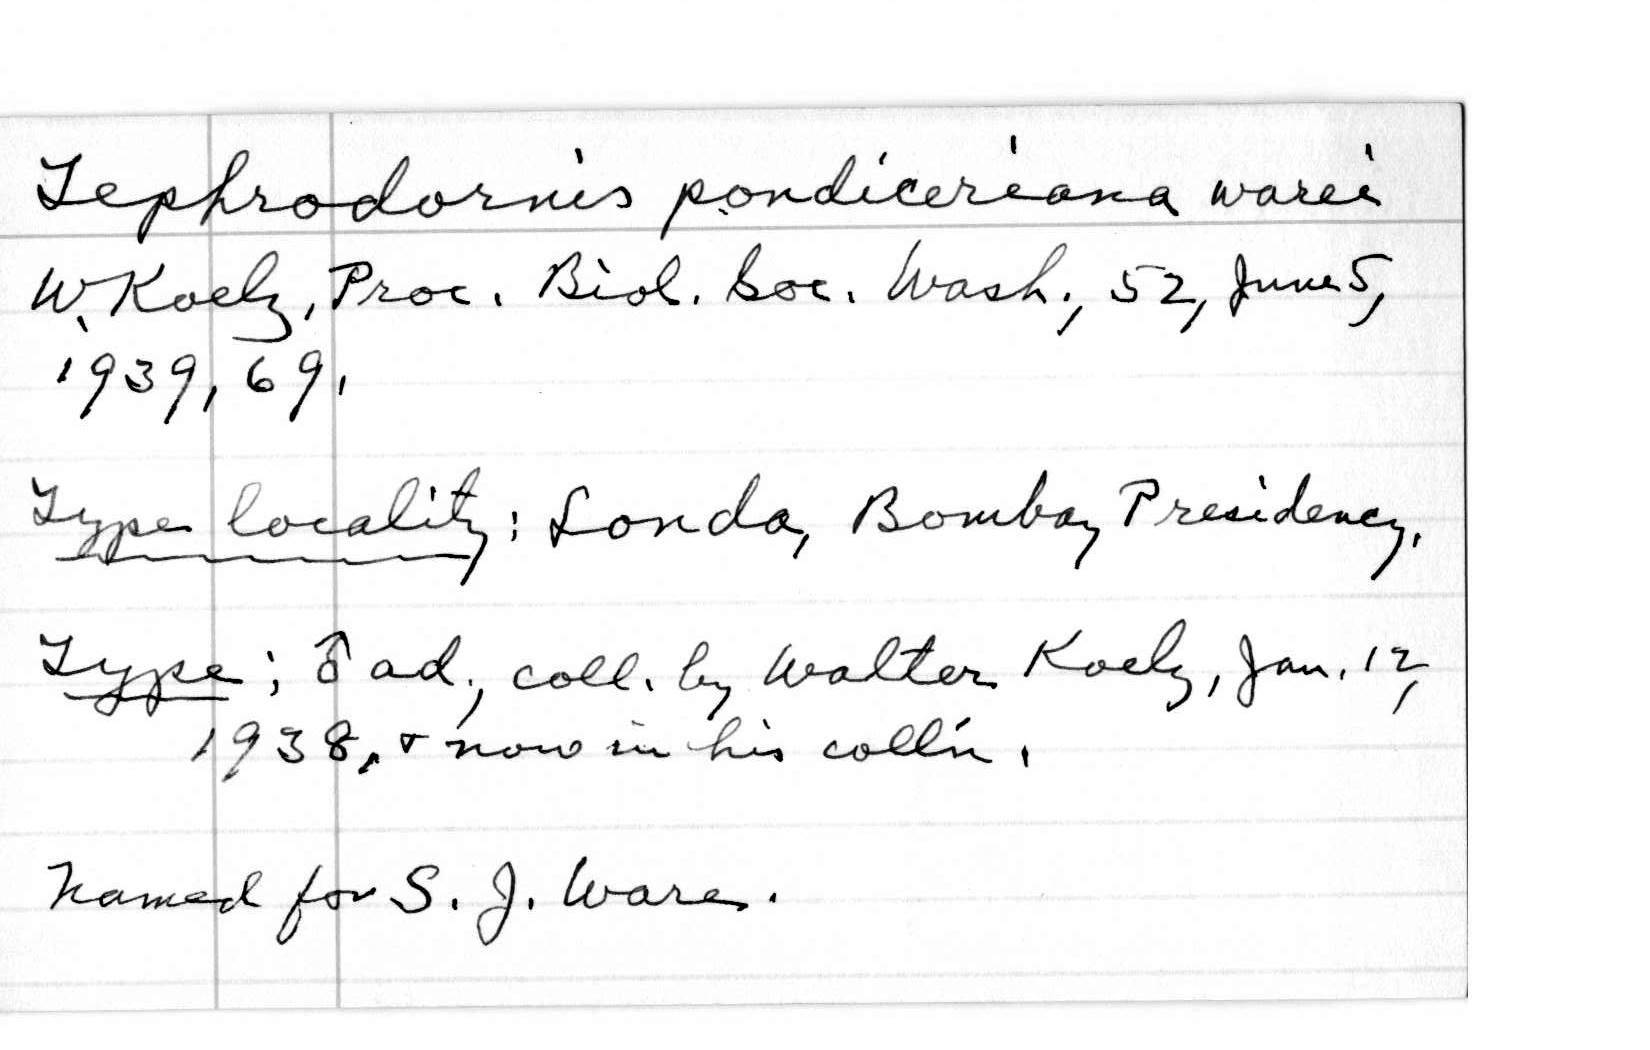 Tephrodornis pondiceriana warei
W. Koelz, Proc. Biol. Soc. Wash., 52, June 5,
1939, 69.
Type locality: Londa, Bombay Presidency.
Type: ♂ ad., coll. by Walter Koelz, Jan. 12,
1938, & now in his coll'n.
Named for S. J. Ware.